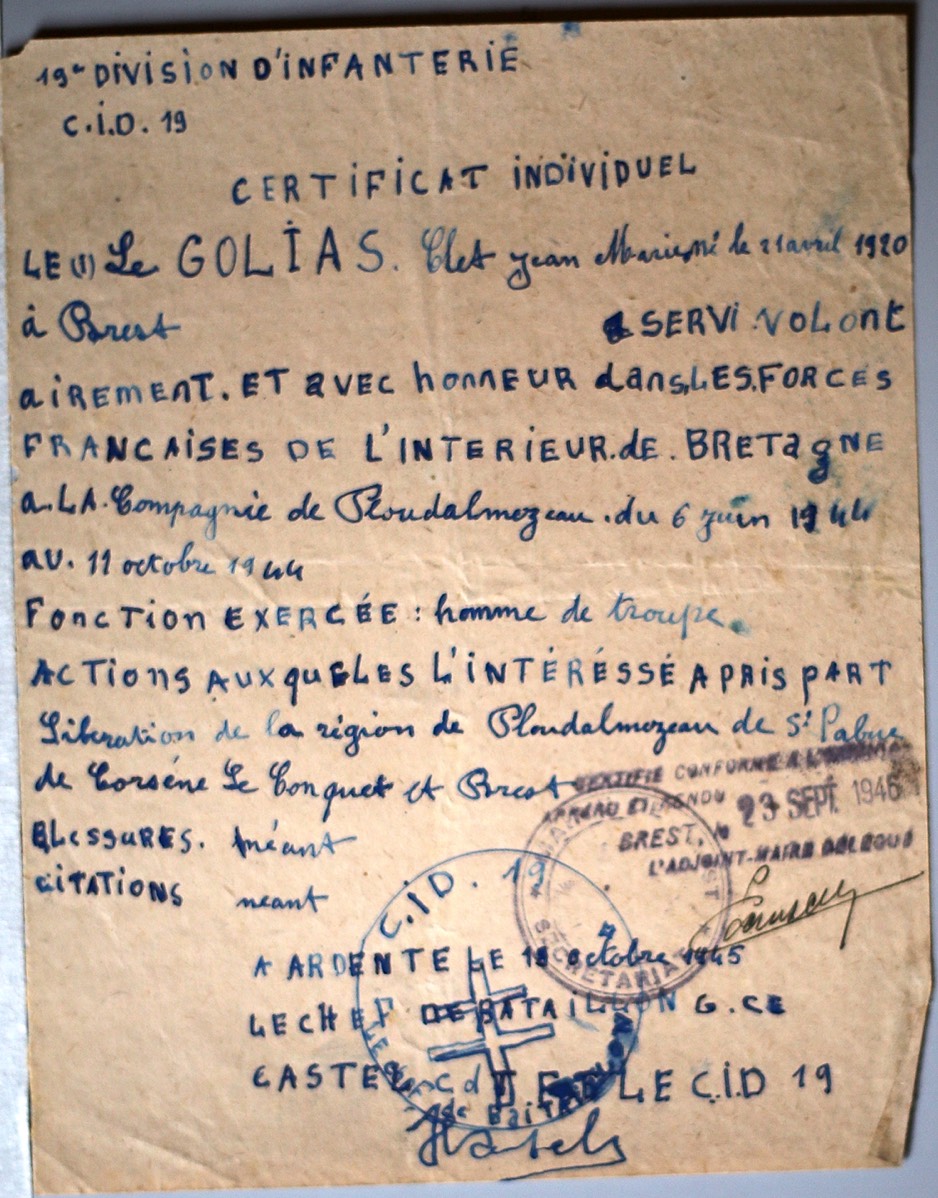 19e DIVISION D'INFANTERIE
C.I.D. 19
CERTIFICAT INDIVIDUEL
LE (1) Le GOLIAS. Clet Jean Marie, né le 21 avril 1920
à Brest a SERVI VOLONT
AIREMENT. ET avec honneur dans, LES, FORCES
FRANCAISES DE L'INTERIEUR. de. BRETAGNE
a. LA. Compagnie de Ploudalmozeau. du 6 juin 1944
au. 11 octobre 1944
FONCTION EXERCÉE : homme de troupe.
ACTIONS AUXQUELES L'INTÉRÉSSÉ A PRIS PART
Liberation de la région de Ploudalmozeau de St Pabu
de Corséne Le Conquet et Brest
CERTIFIE CONFORME A
BREST, le 23 SEPT. 1946
L'ADJOINT-MAIRE DELEGUE
BLESSURES. néant
CITATIONS néant
SECRETARIAT
C.I.D. 19
A ARDENTE LE 19 octobre 1945
LE CHEF DE BATAILLON G. CE
CASTEL C dt LE C.I.D 19